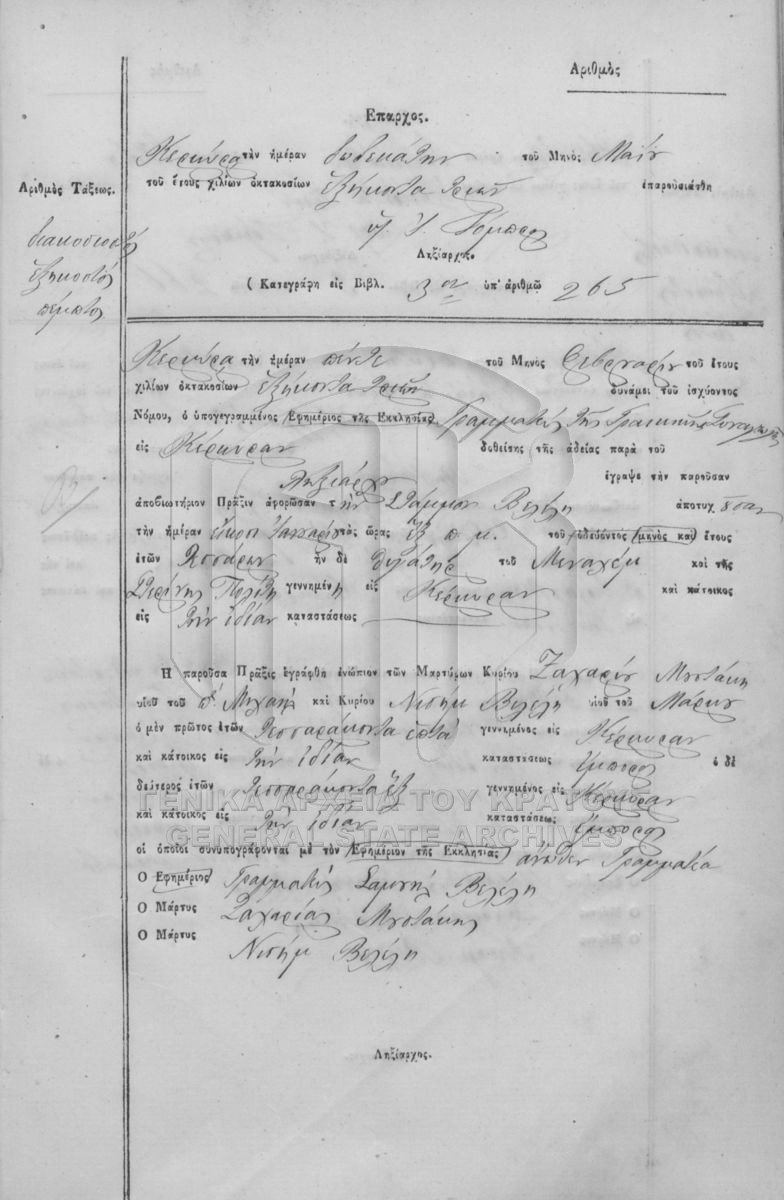 Αριθμὸς
Επαρχος.
Κερκύρα τὴν ἡμέραν δωδεκάτην τοῦ Μηνὸς Μαΐου
τοῦ ἔτους χιλίων ὀκτακοσίων ἑξήκοντα τριῶν ἐπαρουσιάσθη
Ληξίαρχος.
( Κατεγράφη εἰς Βιβλ. 3ον ὑπ' ἀριθμῷ 265
Αριθμὸς Τάξεως.
διακοσιοστὸς
ἑξηκοστὸς
πέμπτος
Κερκύρα τὴν ἡμέραν πέντε τοῦ Μηνὸς Φεβρουαρίου τοῦ ἔτους
χιλίων ὀκτακοσίων ἑξήκοντα τριῶν δυνάμει τοῦ ἰσχύοντος
Νόμου, ὁ ὑπογεγραμμένος Εφημέριος τῆς Εκκλησίας Γραμματεὺς τῆς Γραικικῆς Συναγωγῆς
εἰς Κέρκυραν δοθείσης τῆς ἀδείας παρὰ τοῦ
Ληξιάρχου ἔγραψε τὴν παροῦσαν
ἀποβιωτήριον Πρᾶξιν ἀφορῶσαν τὴν Στάμμον Βελέλη ἀποτυχοῦσαν
τὴν ἡμέραν εἴκοσι Ἰανουαρίου τὰς ὥρας ἓξ π. μ. τοῦ ὁδεύοντος μηνὸς καὶ ἔτους
ἐτῶν τεσσάρων ἦν δὲ θυγάτηρ τοῦ Μεναχὲμ καὶ τῆς
Στερίνης γεννημένη εἰς Κέρκυραν καὶ κάτοικος
εἰς τὴν ἰδίαν καταστάσεως
Η παροῦσα Πρᾶξις ἐγράφθη ἐνώπιον τῶν Μαρτύρων Κυρίου Ζαχαρίου Μουστάκη
υἱοῦ τοῦ π. Μιχαὴλ καὶ Κυρίου Νισὴμ Βελέλη υἱοῦ τοῦ Μάρκου
ὁ μὲν πρῶτος ἐτῶν τεσσαράκοντα ἑπτὰ γεννημένος εἰς Κέρκυραν
καὶ κάτοικος εἰς τὴν ἰδίαν καταστάσεως ἔμπορος ὁ δὲ
δεύτερος ἐτῶν τεσσαράκοντα ἓξ γεννημένος εἰς Κέρκυραν
καὶ κάτοικος εἰς τὴν ἰδίαν καταστάσεως ἔμπορος
οἱ ὁποῖοι συνυπογράφονται μὲ τὸν Εφημέριον τῆς Εκκλησίας ἄνωθεν Γραμματέα
Ο Εφημέριος Γραμματεὺς Σαμουὴλ Βελέλη
Ο Μάρτυς Ζαχαρίας Μουστάκης
Ο Μάρτυς
Νισὴμ Βελέλη
Ληξίαρχος.
ΓΕΝΙΚΑ ΑΡΧΕΙΑ ΤΟΥ ΚΡΑΤΟΥΣ
GENERAL STATE ARCHIVES